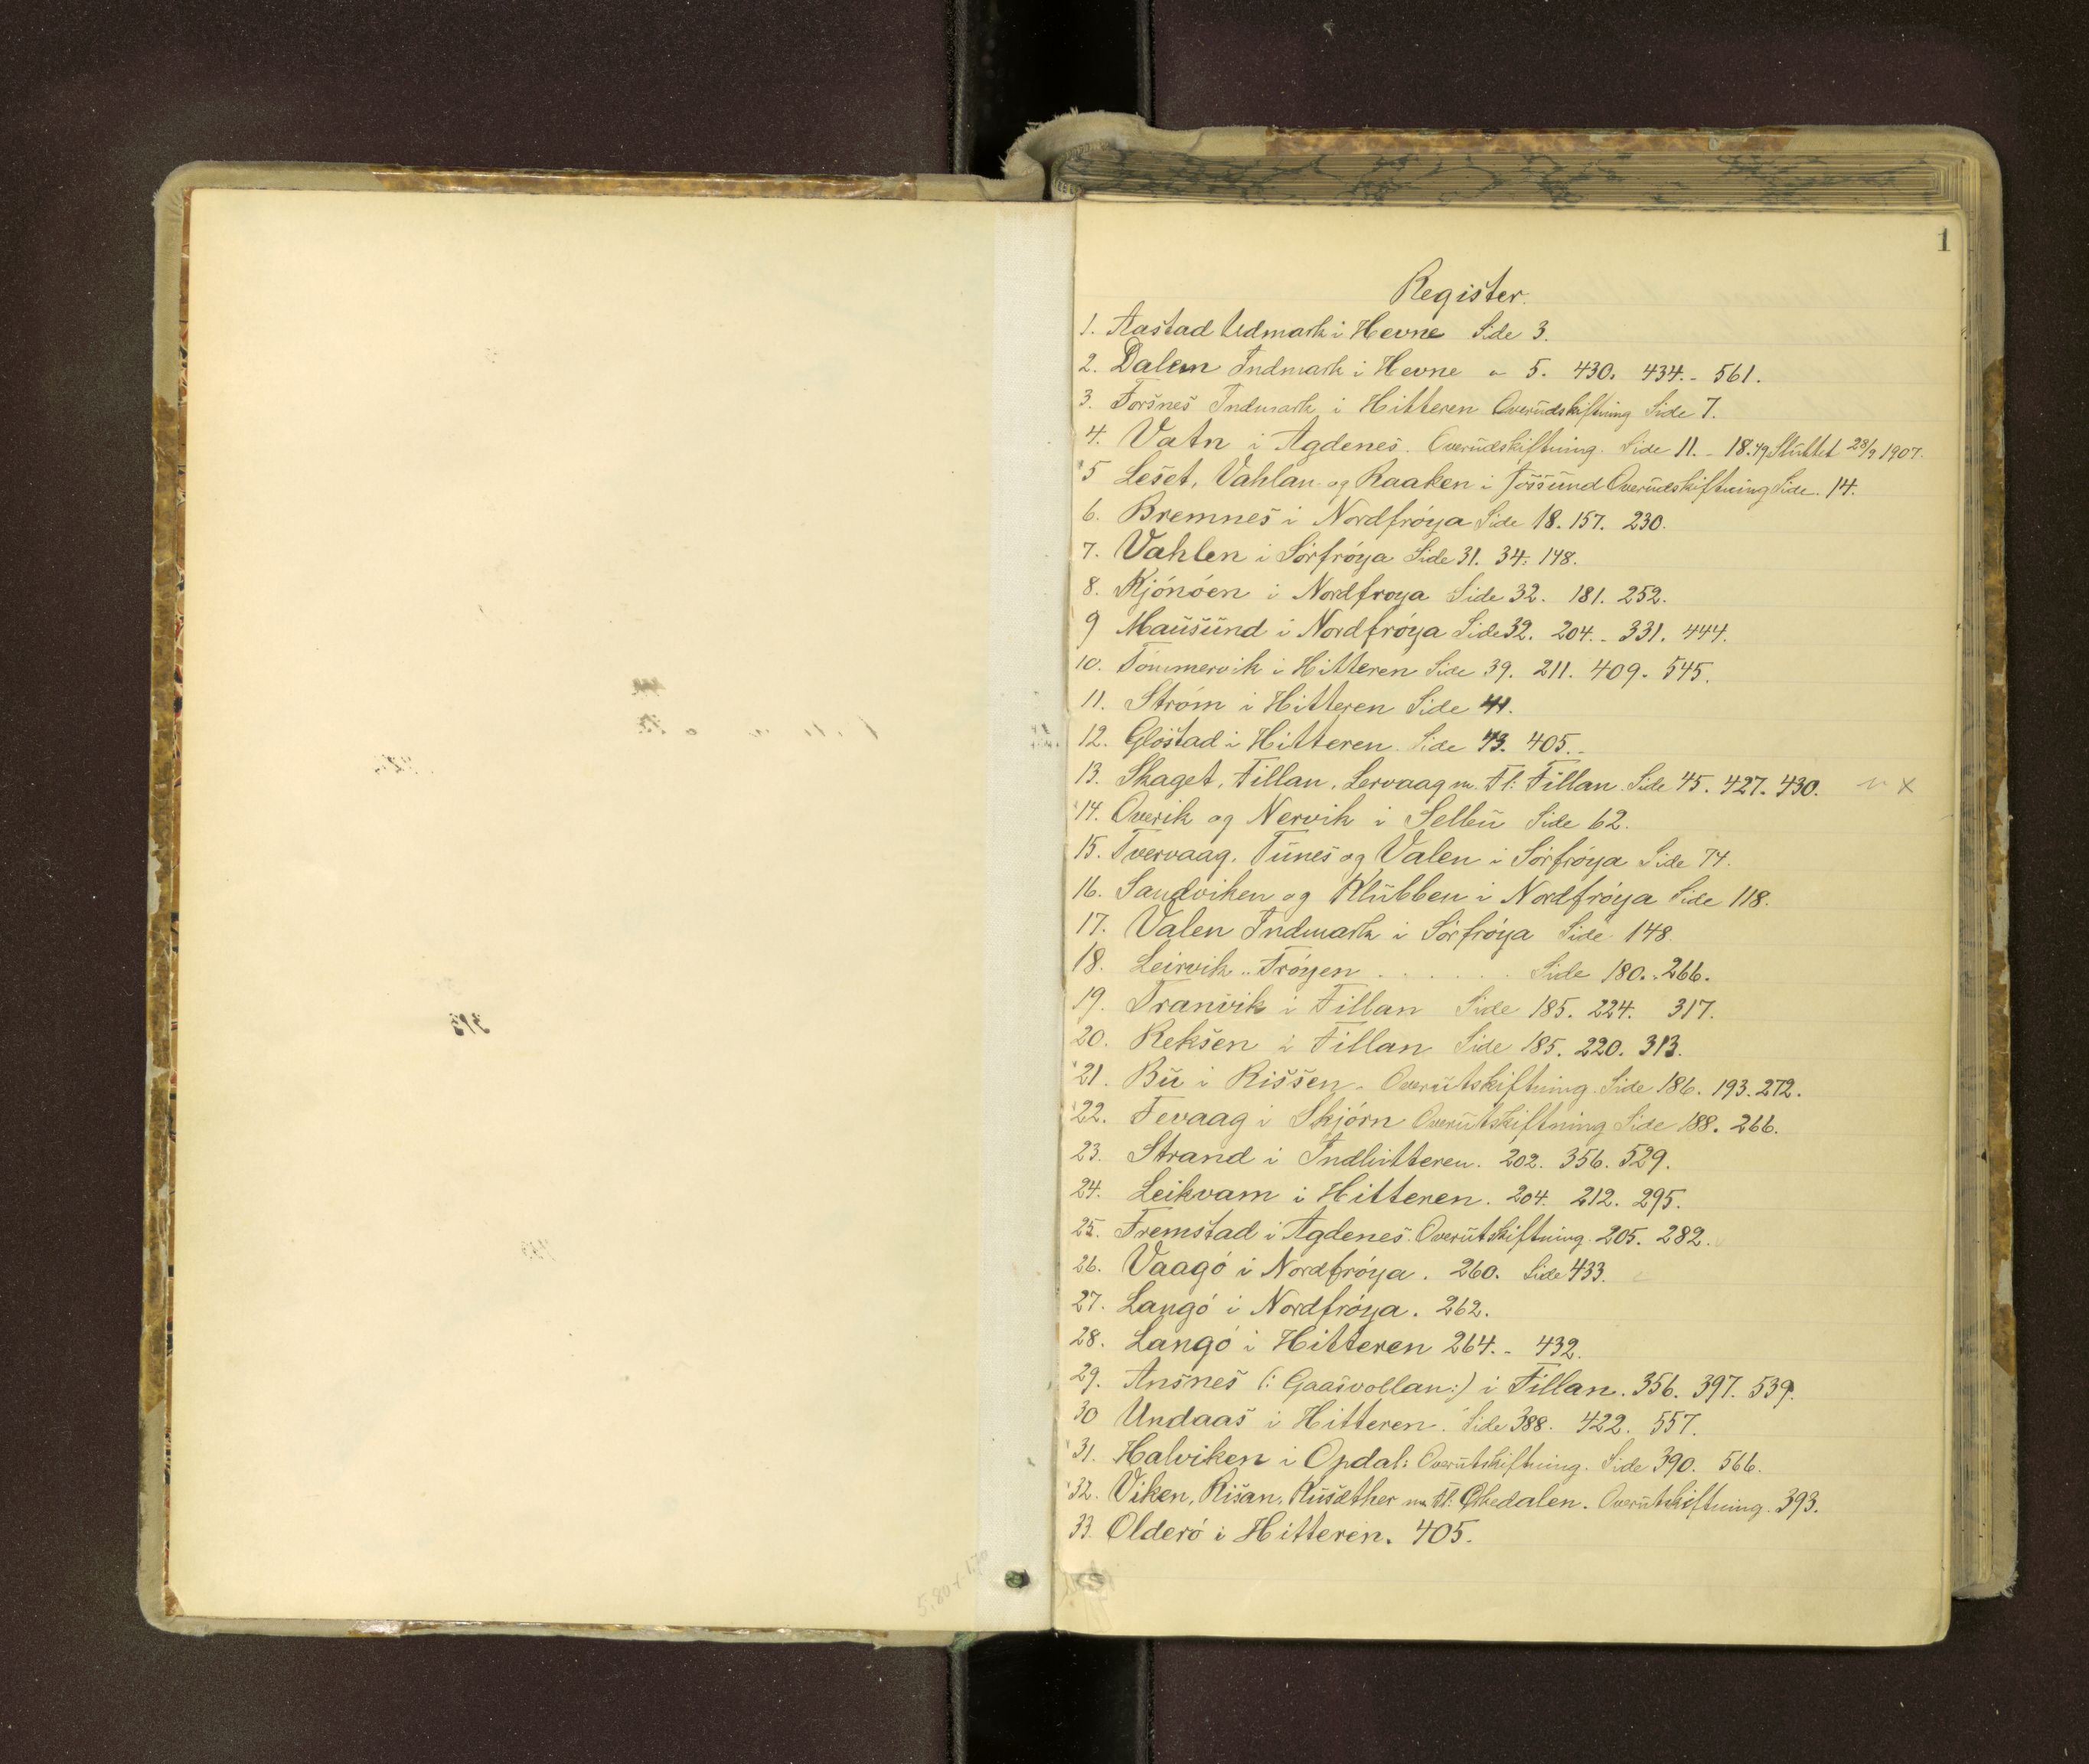 1
Register.
1. Aastad Udmark i Hevne Side 3.
2. Dalem Indmark i Hevne " 5. 430. 434. - 561.
3. Forsnes Indmark i Hitteren Overudskiftning Side 7.
4. Vatn i Agdenes. Overudskiftning. Side 11. - 18. 49 Sluttet 28/9 1907.
5 Leset, Vahlan og Raaken i Jössund Overudskiftning Side. 14.
6. Bremnes i Nordfröya Side 18. 157. 230.
7. Vahlen i Sörfröya Side 31. 34. 148.
8. Kjönöen i Nordfroya Side 32. 181. 252.
9 Mausund i Nordfröya Side 32. 204. - 331. 444.
10. Tömmervik i Hitteren Side 39. 211. 409. 545.
11. Ström i Hitteren Side 41.
12. Glöstad i Hitteren. Side 43. 405. -
13. Skaget, Fillan, Lervaag m. Fl: Fillan. Side 45. 427. 430.
14. Overik og Nervik i Selbu Side 62.
15. Tvervaag, Tunes og Valen i Sörfröya Side 74.
16. Sandviken og Klubben i Nordfröya Side 118.
17. Valen Indmark i Sörfröya Side 148.
18. Leirvik " Fröyen . . . . . . Side 180. - 266.
19. Tranvik i Fillan Side 185. 224. 317.
20. Reksen i Fillan Side 185. 220. 313.
21. Bu i Rissen. Overutskiftning. Side 186. 193. 272.
22. Fevaag i Skjörn Overutskiftning Side 188. 266.
23. Strand i Indhitteren. 202. 356. 529.
24. Leikvam i Hitteren. 204. 212. 295.
25. Fremstad i Agdenes. Overutskiftning. 205. 282.
26. Vaagö i Nordfröya. 260. Side 433.
27. Langö i Nordfröya. 262.
28. Langö i Hitteren 264. - 432.
29. Ansnes (: Gaasvollan:) i Fillan. 356. 397. 539.
30 Undaas i Hitteren. Side 388. 422. 557.
31. Halviken i Opdal: Overutskiftning. Side 390. 566.
32. Viken, Risan, Rusæther m Fl: Ørkedalen. Overutskiftning. 393.
33. Olderö i Hitteren. 405.
5,80 + 1,70